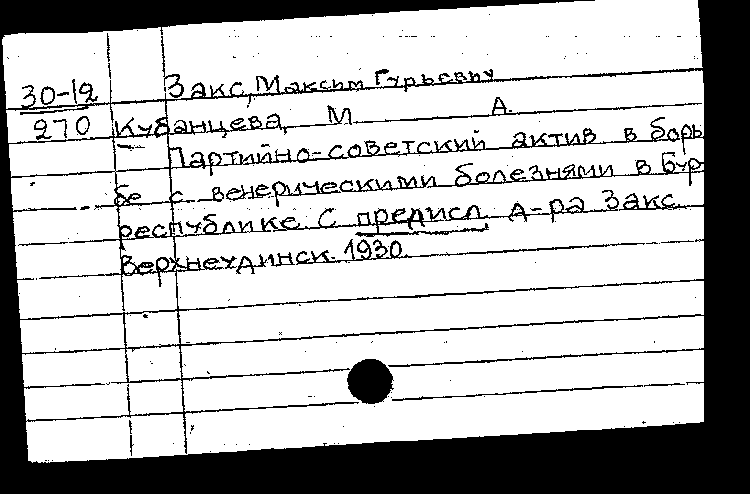 30-12 Закс, Максим Гурьевич
270 Кубанцева, М. А.
Партийно-советский актив в борь
бе с венерическими болезнями в Бур-
республике. С предисл. д-ра Закс.
Верхнеудинск. 1930.